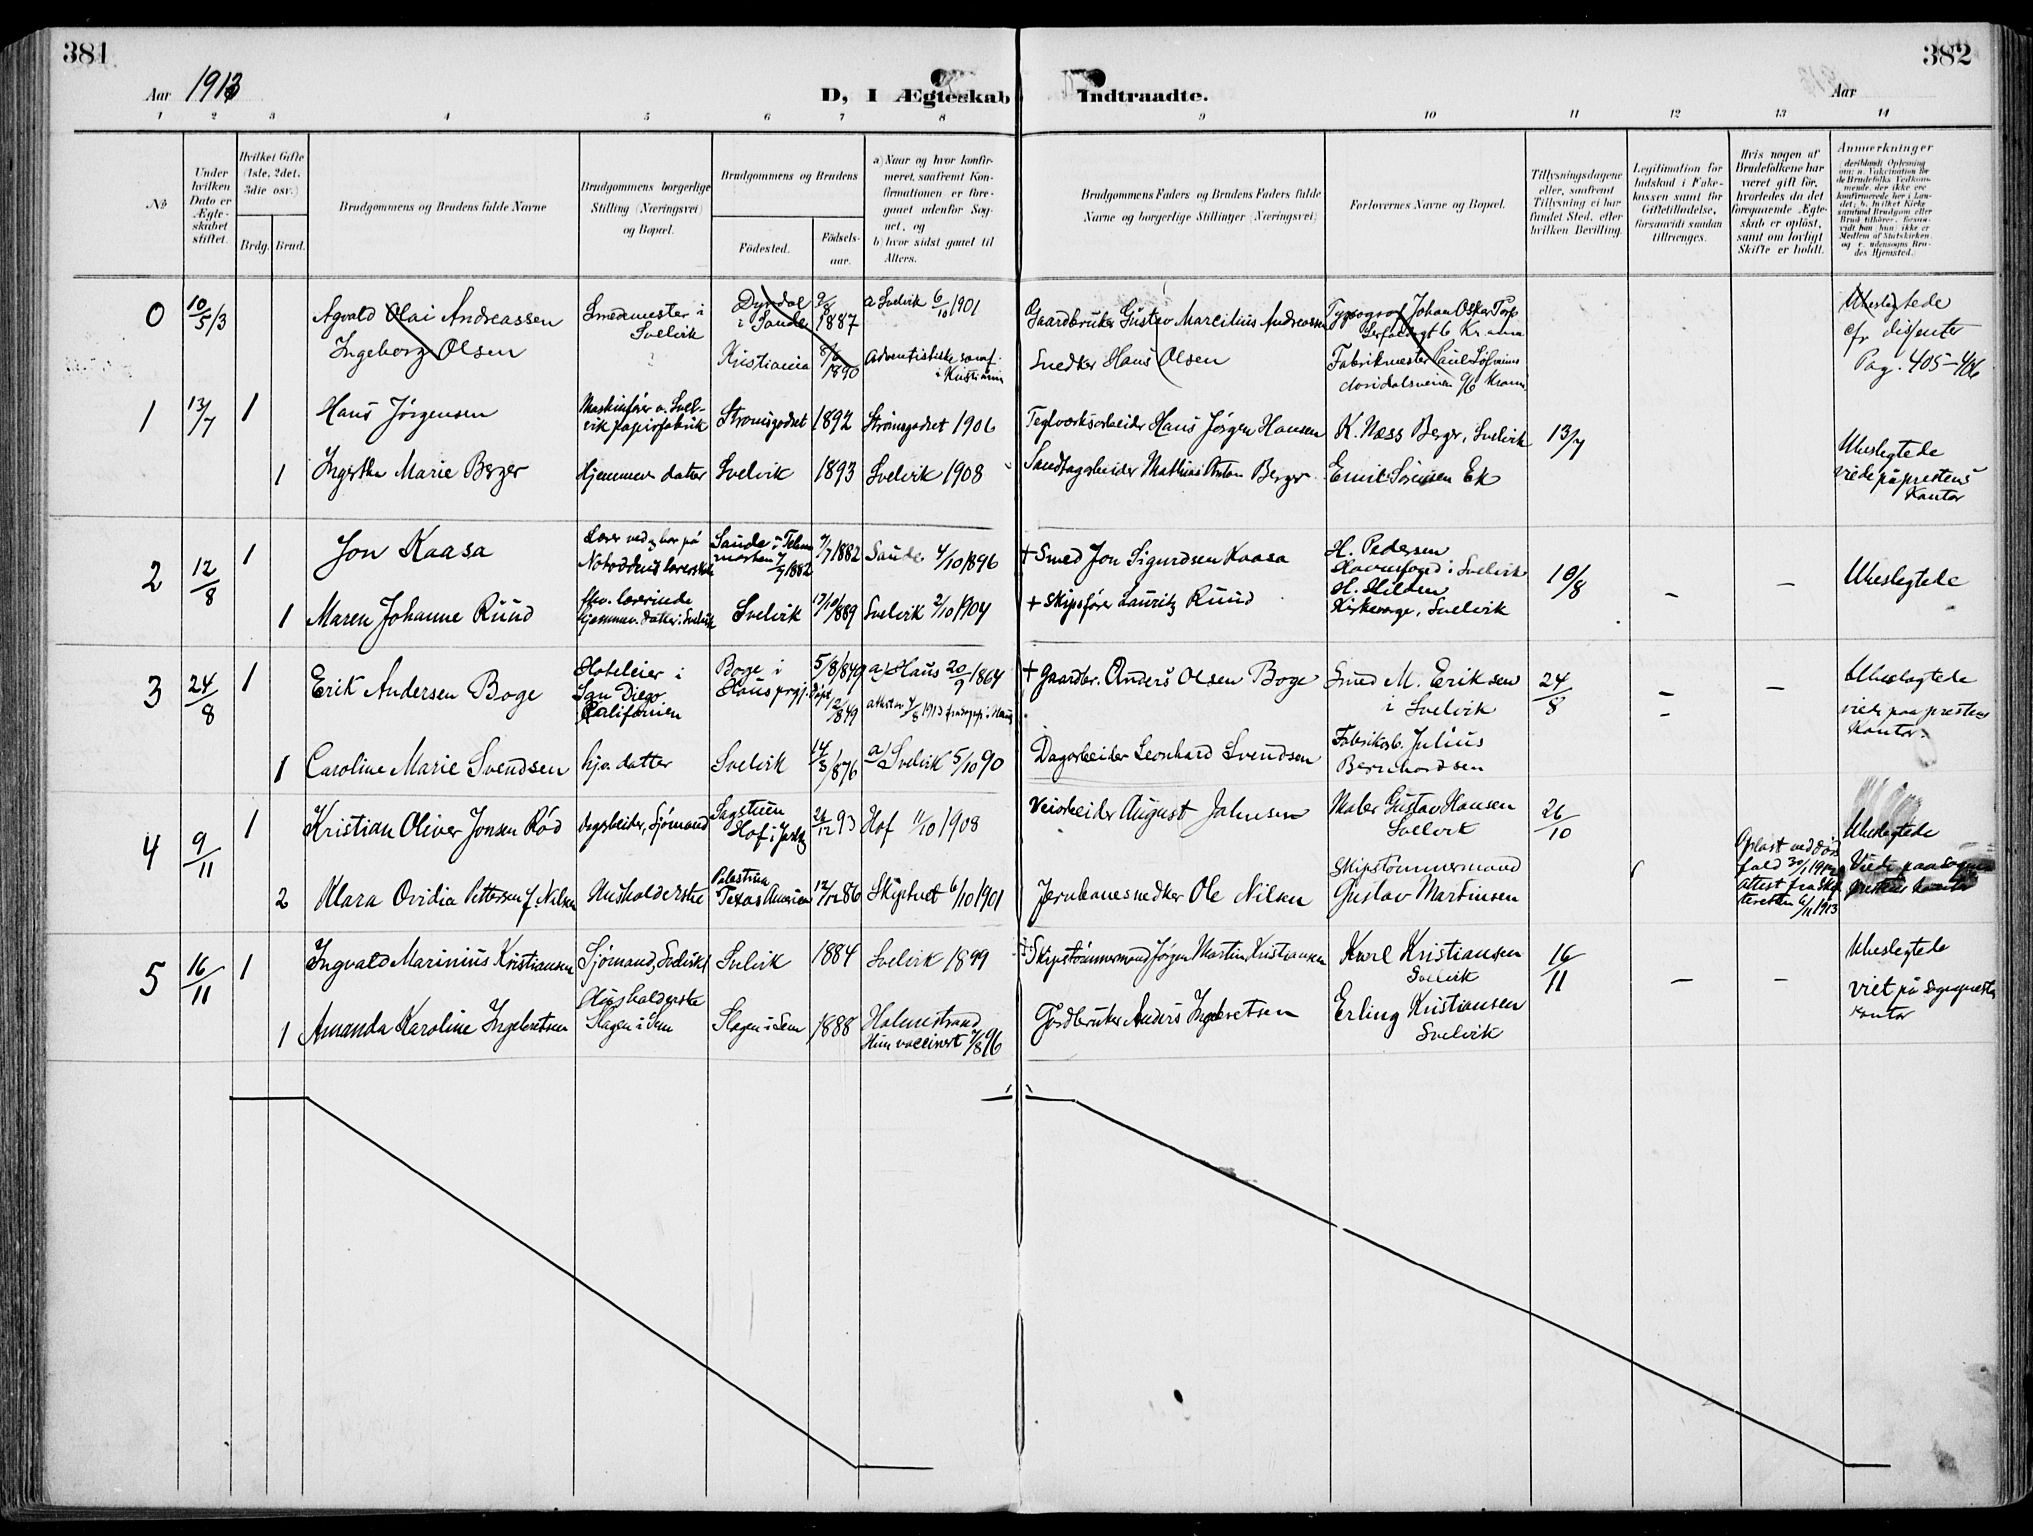 381
382
Aar 1913
D, I Ægteskab Indtraadte.
Aar
1 2 3 4 5 6 7 8 9 10 11 12 13 14
No.
Under hvilken Dato er Ægteskabet stiftet.
Hvilket Gifte (1ste, 2det, 3die osv.)
Brdg. Brud.
Brudgommens og Brudens fulde Navne
Brudgommens borgerlige Stilling (Næringsvei) og Bopæl.
Brudgommens og Brudens
Fødested.
Fødselsaar.
a) Naar og hvor konfirmeret, saafremt Konfirmationen er foregaaet udenfor Sognet, og
b) hvor sidst gaaet til Alters.
Brudgommens Faders og Brudens Faders fulde Navne og borgerlige Stillinger (Næringsvei)
Forlovernes Navne og Bopæl.
Tillysningsdagene eller, saafremt Tillysning ei har fundet Sted, efter hvilken Bevilling.
Legitimation for Indskud i Enkekassen samt for Giftetilladelse, forsaavidt saadan tiltrænges.
Hvis nogen af Brudefolkene har været gift før, hvorledes da det foregaaende Ægteskab er opløst, samt om lovligt Skifte er holdt.
Anmærkninger
0 10/5/3
Agvald Olai Andreassen
Smedmester i Svelvik
i Sande
9/8 1887
a Svelvik 6/10 1901
Gaardbruker Gustav Marcilius Andreassen
Typograf Johan Oskar
Ubeslegtede
cfr dissenter
Pag. 405-406
Ingeborg Olsen
Kristiania
1890
Adventistiske samf. i Kristiania
Snedker Hans Olsen
Fabrikmester Paul
1 13/7 1
Hans Jørgensen
Maskinfører v. Svelvik papirfabrik
Strømsgodset
1892
Strømsgodset 1906
Teglverksarbeider Hans Jørgen Hansen
K. Næss Berger, Svelvik
13/7
Ubeslegtede
viede på prestens Kontor
1
Marie Berger
Hjemmev. datter
Svelvik
1893
Svelvik 1908
Mathias Anton Berger
Emil Sørensen Ek
2 12/8 1
Jon Kaasa
Lærer ved og bor på Notodden
Saude i Telemarken 7/7 1882
7/7 1882
Saude 4/10 1896
+ Smed Jon Sigurdsen Kaasa
H. Pedersen
Havnefoged i Svelvik
H. Hilden
Kirkesange, Svelvik
10/8
-
-
Ubeslegtede
1
Maren Johanne Ruud
fhv. lærerinde
hjemmev. datter i Svelvik
Svelvik
17/10 1889
Svelvik 2/10 1904
+ Skipsfører Lauritz Ruud
3 24/8 1
Erik Andersen Boge
Hoteleier i San Diego Californien
Boge i Haus prgj.
5/8/1849
døpt 12/8 49
a) Haus 20/9 1864
attest av 7/8 1913 fra sogp. i Haus
+ Gaardbr. Anders Olsen Boge
Smed M. Eriksen i Svelvik
24/8
-
-
-
Ubeslægtede
viede paa prestens Kontor.
1
Caroline Marie Svendsen
hjv. datter
Svelvik
14/3/1876
a) Svelvik 5/10 90
Dagarbeider Leonhard Svendsen
Fabrikarb. Julius Bernhardsen
4 9/11 1
Kristian Oliver Jonsen Rød
dagarbeider, Sjømand
Sagstuen Hof i Jarlsbg
26/12 93
Hof 11/10 1908
Veiarbeider August Johnsen
Maler Gustav Hansen
Svelvik
26/10
Opløst ved dødsfald 30/1 1912
Attest fra Skifteretten 6/11 1913
Ubeslegtede
Viede paa sogneprestens kontor
2
Klara Ovidia Pettersen f. Nilsen
Husholderske
Palestina Texas Amerika
12/12 86
Skiptvet 6/10 1901
Jernbanesnedker Ole Nilsen
Skipstømmermand
Gustav Martinsen
5 16/11 1
Ingvald Marinius Kristiansen
Sjømand, Svelvik
Svelvik
1884
Svelvik 1899
Skipstømmermand Jørgen Martin Kristiansen
Karl Kristiansen
Svelvik
16/11
-
-
Ubeslegtede
viet på sogneprestens kontor
1
Amanda Karoline Ingebretsen
Husholderske
Slagen i Sem
Slagen i Sem
1888
Holmestrand
Hun vaccinert 7/8 96
Jordbruker Anders Ingebretsen
Erling Kristiansen
Svelvik